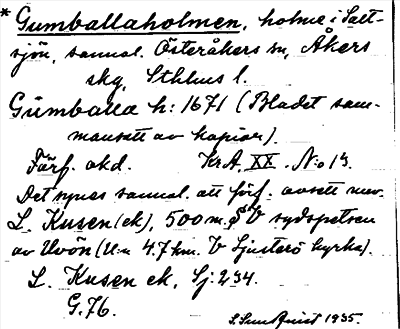 * Gumballaholmen, holme i Salt-
sjön, sannol. Österåkers sn, Åkers
skg, Sthlms l.
Gumballa h: 1671 (Bladet sam-
mansatt av kopior).
Färf. okd. KrA. XX. N:o 13.
Det synes sannol. att förf. avsett nuv.
L. Kusen (ek), 500 m. SV sydspetsen
av Uvön (U:n 4.7 km. V Ljusterö kyrka).
L. Kusen ek, Sj: 234.
G. 76.
1935.